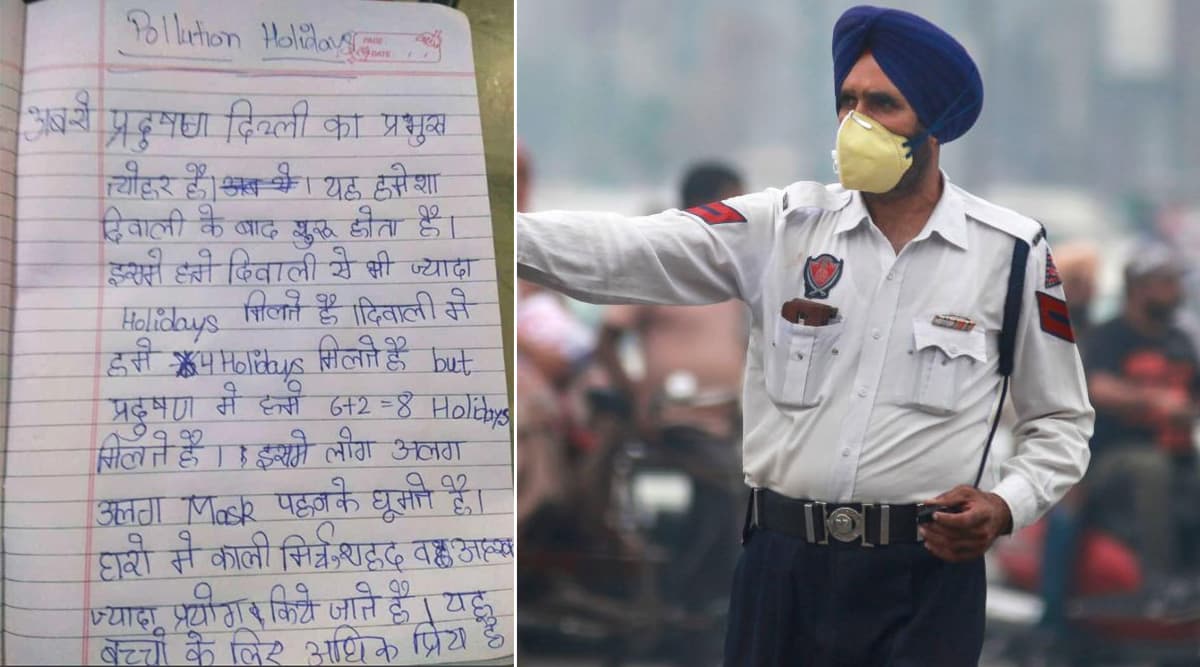 Pollution Holidays
PAGE
DATE
अबसे प्रदुषण दिल्ली का प्रमुख
त्योहर है। अब से। यह हमेशा
दिवाली के बाद शुरू होता है।
इसमे हमे दिवाली से भी ज्यादा
Holidays मिलते है। दिवाली मे
हमे 4 Holidays मिलते है but
प्रदुषण मे हमे 6+2=8 Holidays
मिलते है। इसमे लोग अलग
अलग Mask पहनके घूमते है।
घरो मे काली मिर्च, शहद व अदरक
ज्यादा प्रयोग किये जाते है। यह
बच्चो के लिए अधिक प्रिय है